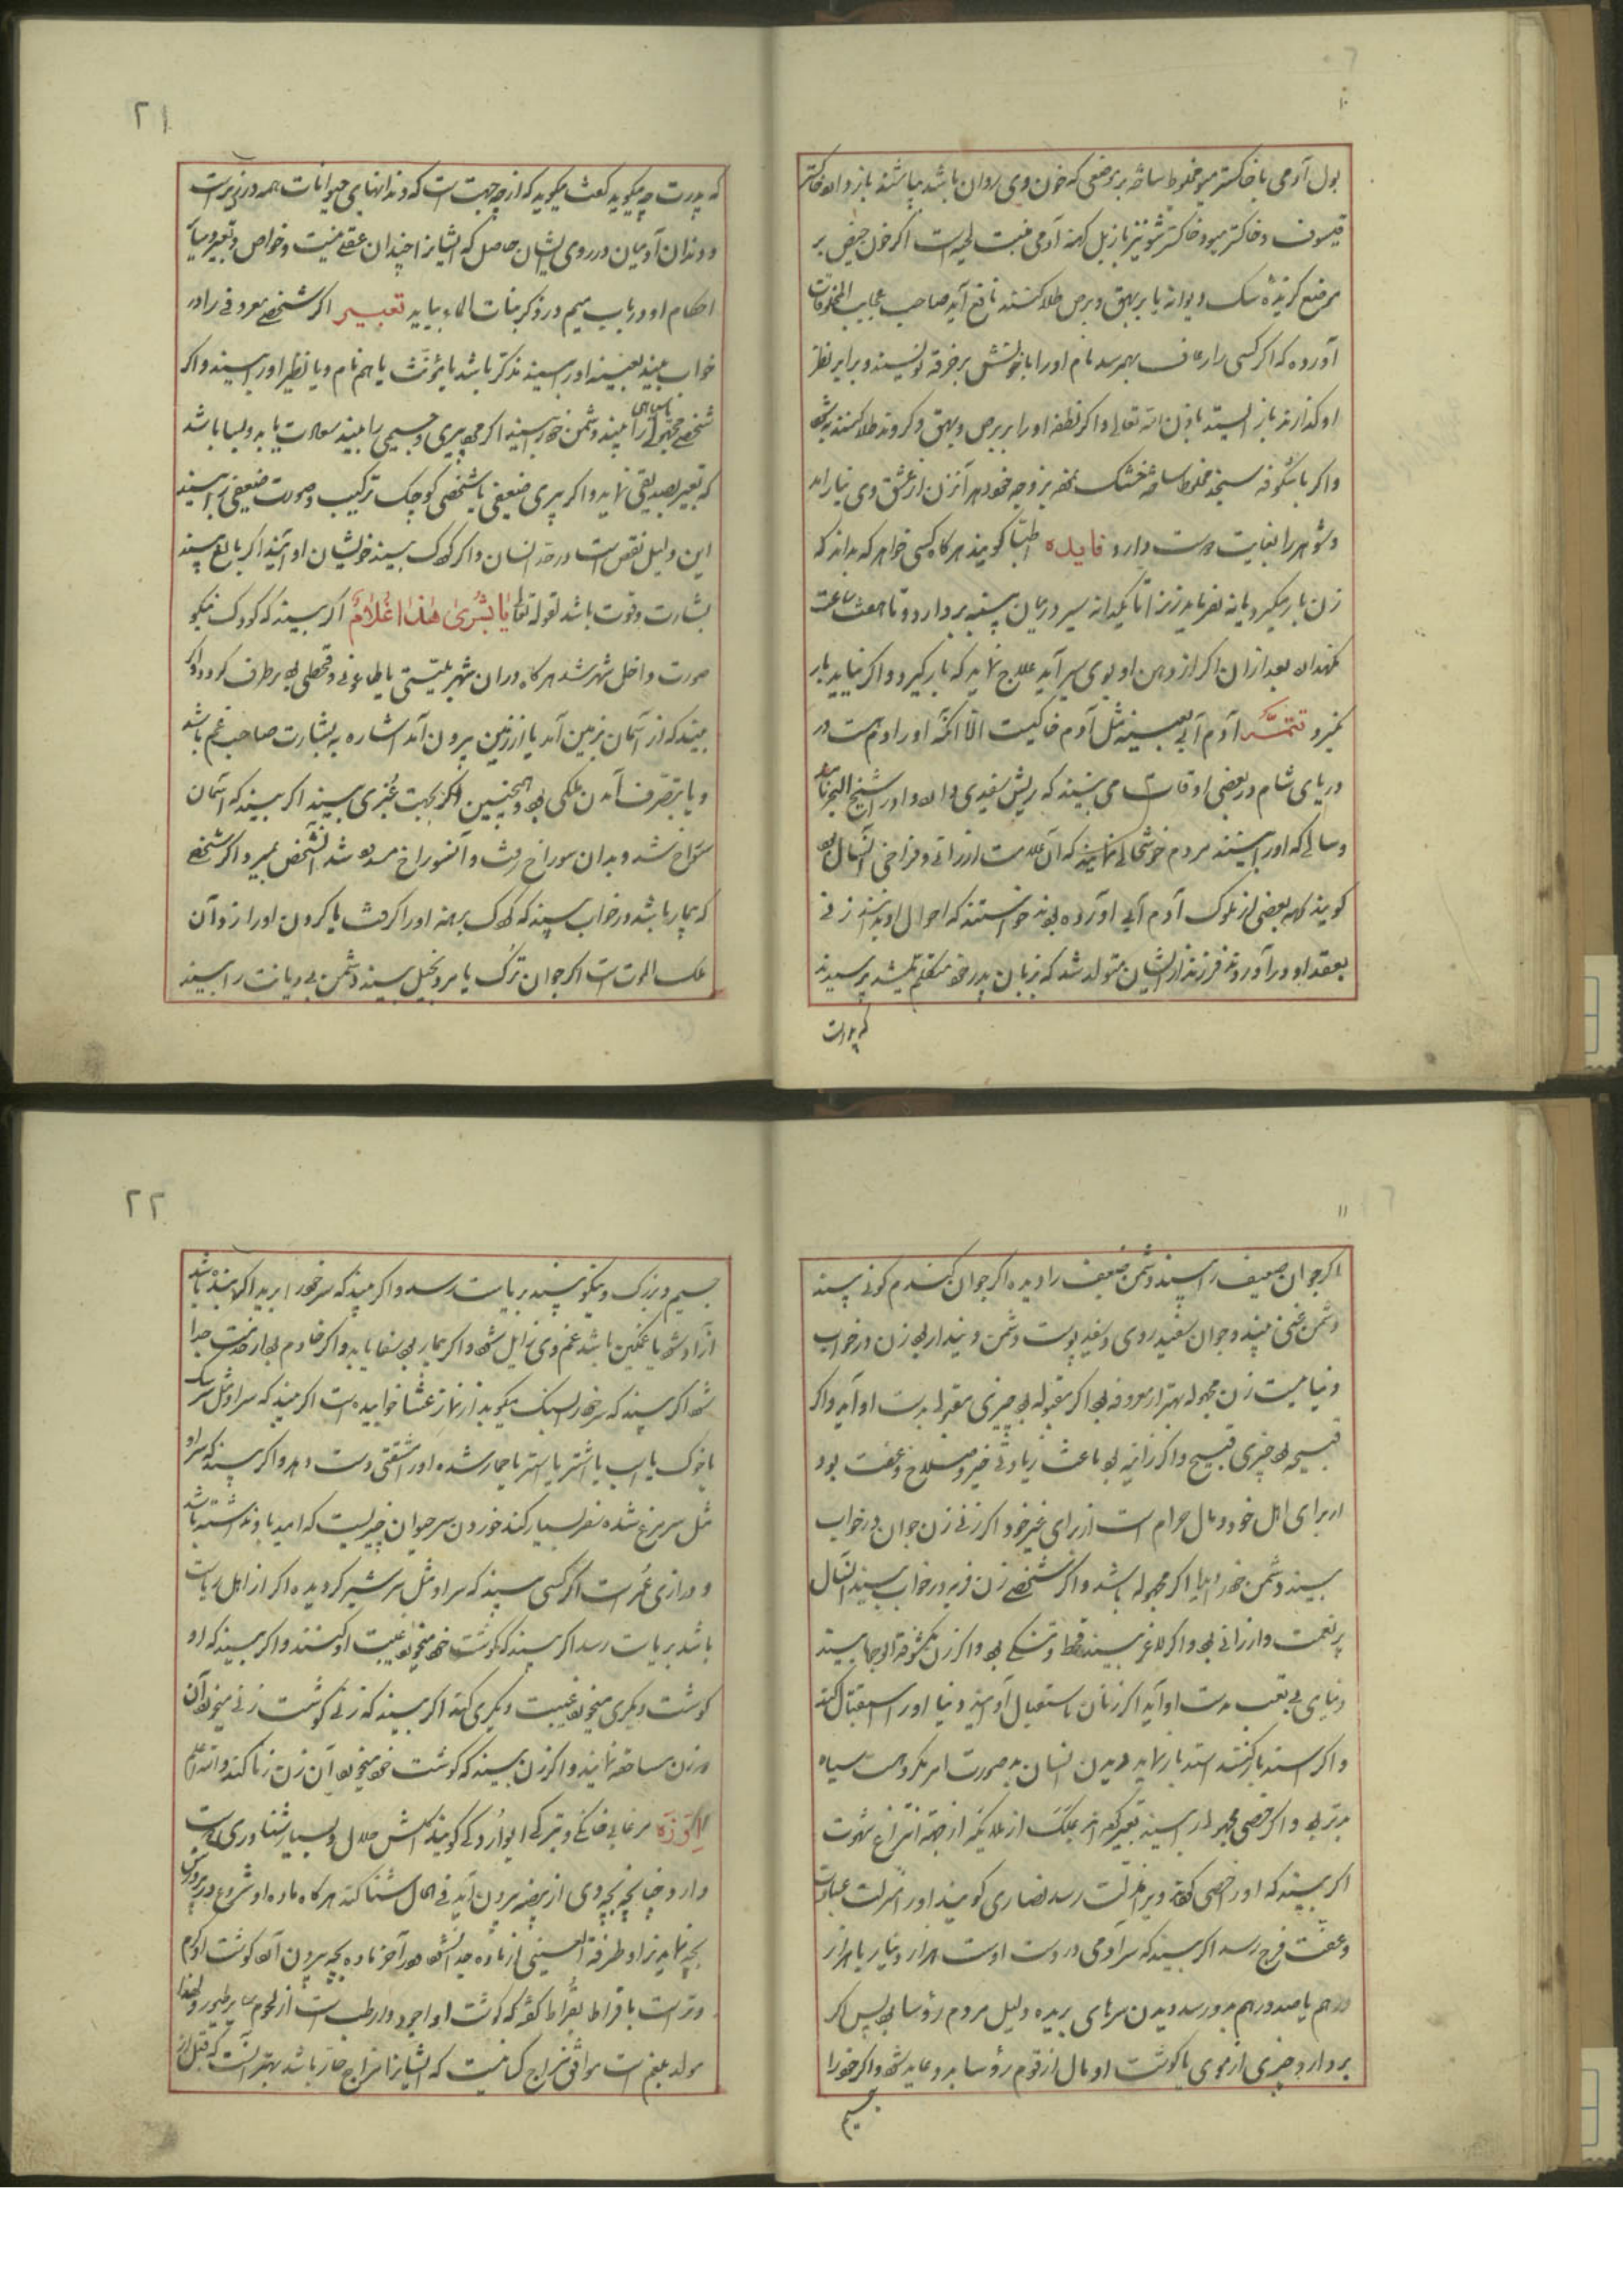 ۱۰
بول آدمی با خاکستر میو مخلوط ساخته بر موضعی که خون وی روان باشد بپاشند باز دارد و خاکستر
قیسون و خاکستر میو و خاکستر شونیز با زبل کهنه آدمی منبت لحیه است اگر خون حیض بر
موضع گزیده سگ دیوانه یا بر بهق و برص طلا کنند نافع آید صاحب عجایب المخلوقات
آورده که اگر کسی را رعاف بهم رسد نام او را با خونش بر خرقه نویسند و برابر نظر
او گذارند باز ایستد باذن الله تعالی و اگر نطفه او را بر برص و بهق و طلا کنند
و اگر با شگوفه سنجد مخلوط ساخته خشک نموده بزوجه خود دهد آن زن از عشق وی نیارامد
و شوهر را بغایت دوست دارد فایده اطبا گویند هرگاه کسی خواهد که بداند که
زن بار میگیرد یا نه بفرماید زن را تا یکدانه سیر در میان پنبه بردارد و تا هفت ساعت
نگهدارد بعد از آن اگر از دهن او بوی سیر آید علاج نماید که بار گیرد و اگر نیاید بار
نگیرد تتمه آدم آبی بعینه مثل آدم خاکیست الا آنکه او را دم هست در
دریای شام در بعضی اوقات می بینند که ریش سفیدی دارد و او را شیخ البحر نامند
و سالی که او را بینند مردم خوشحالی نمایند که آن علامت ارزانی و فراخی آنسال بود
گویند که بعضی از ملوک آدم آبی آورده بودند خواستند که احوال او بدانند زنی
بعقد او در آوردند فرزند از ایشان متولد شد که بزبان پدر خود متکلم میشد پرسیدند
که پدرت
۲۱
که پدرت چه میگوید گفت میگوید که از چه جهت است که دندانهای حیوانات همه در زیر است
و دندان آدمیان در روی ایشان حاصل که ایشانرا چندان عقلی نیست و خواص و تعبیر و سایر
احکام او در باب میم در ذکر بنات الماء بیاید تعبیر اگر شخصی معروفی را در
خواب بیند بعینه او را بیند مذکر باشد یا مؤنث یا هم نام و یا نظیر او را بیند و اگر
شخصی مجهولی را بیند دشمن خود را بیند اگر پیری و جسیمی را بیند سعادت یابد و بسا باشد
که تعبیر بصدیقی نماید و اگر پیری ضعیفی یا شخصی کوچک ترکیب و صورت ضعیفی را بیند
این دلیل نقص است در حد انسان و اگر کودک بیند خویشان او آیند اگر بالغ بیند
بشارت و قوت باشد لقوله تعالی یا بشری هذا غلام اگر بیند که کودک نیکو
صورت داخل شهر شد هرگاه در آن شهر بلیتی یا طاعونی و قحطی بود بر طرف گردد و اگر
بیند که از آسمان بزمین آمد یا از زمین بیرون آمد اشاره به بشارت صاحب غم باشد
و یا بتصرف آمدن ملکی بود و همچنین اگر بجهت غیری بیند اگر بیند که آسمان
سوراخ شد و بدان سوراخ رفت و آنسوراخ مسدود شد آنشخص بمیرد و اگر شخصی
که بیمار باشد در خواب بیند که کودک برهنه او را گرفت یا گردن او را زد آن
ملک الموت است اگر جوان ترک یا مرد بخیل بیند دشمن بی دیانت را بیند
۱۱
اگر جوان ضعیف را بیند دشمن ضعیف را دیده اگر جوان گندم گونی بیند
دشمن غنی بیند و جوان سفید روی و سفید پوست دشمن دیندار بود زن در خواب
دنیا میست زن مجهوله بهتر از معروفه بود اگر مقبوله بود چیزی مقبول بدست او آید و اگر
قبیحه بود چیزی قبیح و اگر زانیه بود باعث زیادتی خیر و صلاح و عفت بود
از برای اهل خود و مال حرام است از برای غیر خود اگر زنی زن جوان در خواب
بیند دشمن خود را بیابد اگر مجهوله باشد و اگر شخصی زن فربه در خواب بیند آنسال
پر نعمت و ارزانی بود و اگر لاغر بیند قحط و تنگی بود و اگر زن مکشوفة الوجه بیند
دنیای بی تعب بدست او آید اگر زنان باستقبال آو آیند دنیا او را استقبال کند
و اگر بیند باز گشتند باز نماید دیدن انسان بصورت امر مکروهست سیاه
بدتر بود و اگر خصی مجهول را بیند تعبیر کرده اند بملک از ملائکه از جهة انتزاع شهوت
اگر بیند که او را خصی کردند ویرا مذلت رسد نصاری گویند او را منزلت عبادت
و عفت فرج رسد اگر بیند که سر آدمی در دست اوست هزار دینار یا هزار
درهم یا صد درهم بدو رسد دیدن سرهای بریده دلیل مردم رؤسا بود پس اگر
بردارد چیزی از موی یا گوشت او مال از قوم رؤسا بدو عاید شود و اگر خود را
جسیم
۲۲
جسیم و بزرگ و نیکو بیند بریاست رسد و اگر بیند که سر خود را برید اگر بنده باشد
آزاد شود یا غمگین باشد غم وی زایل شود و اگر بیمار بود شفا یابد و اگر خادم بود از خدمت جدا
شود اگر بیند که سر خود را بسنگ میکوبد از نماز عشا خوابیده است اگر بیند که سر او مثل سر سگ
یا خوک یا اسب یا اشتر یا استر یا حمار شده او را مشقتی دست دهد و اگر بیند که سر او
مثل سر مرغ شده سفر بسیار کند خوردن سر حیوان چیزیست که امید باو نداشته باشد
و درازی عمر است اگر کسی بیند که سر او مثل سر شیر گردیده اگر از اهل ریاست
باشد بریاست رسد اگر بیند که گوشت خود میخورد غیبت او کنند و اگر بیند که او
گوشت دیگری میخورد غیبت دیگری کند اگر بیند که زنی گوشت زنی میخورد آن
دو زن مساحقه نمایند و اگر زن بیند که گوشت خود میخورد آن زن زنا کند والله اعلم
الاوزه مرغابی خانگی و بترکی گویند گوشتش حلال و بسیار شناوری دوست
دارد چنانچه بچه وی از بیضه بیرون آید فی الحال شنا کند هرگاه ماده او شروع در پرورش
بچه نماید نر او طرفة العینی از ماده جدا نشود در آخر ماده بچه بیرون آرد گوشت او گرم
و تر است بقراط گفته که گوشت او اجود و ارطب است از لحوم سایر طیور و لهذا
مولد بلغم است موافق مزاج کسانیست که ایشانرا مزاج حار باشد بهتر آنست که قبل از